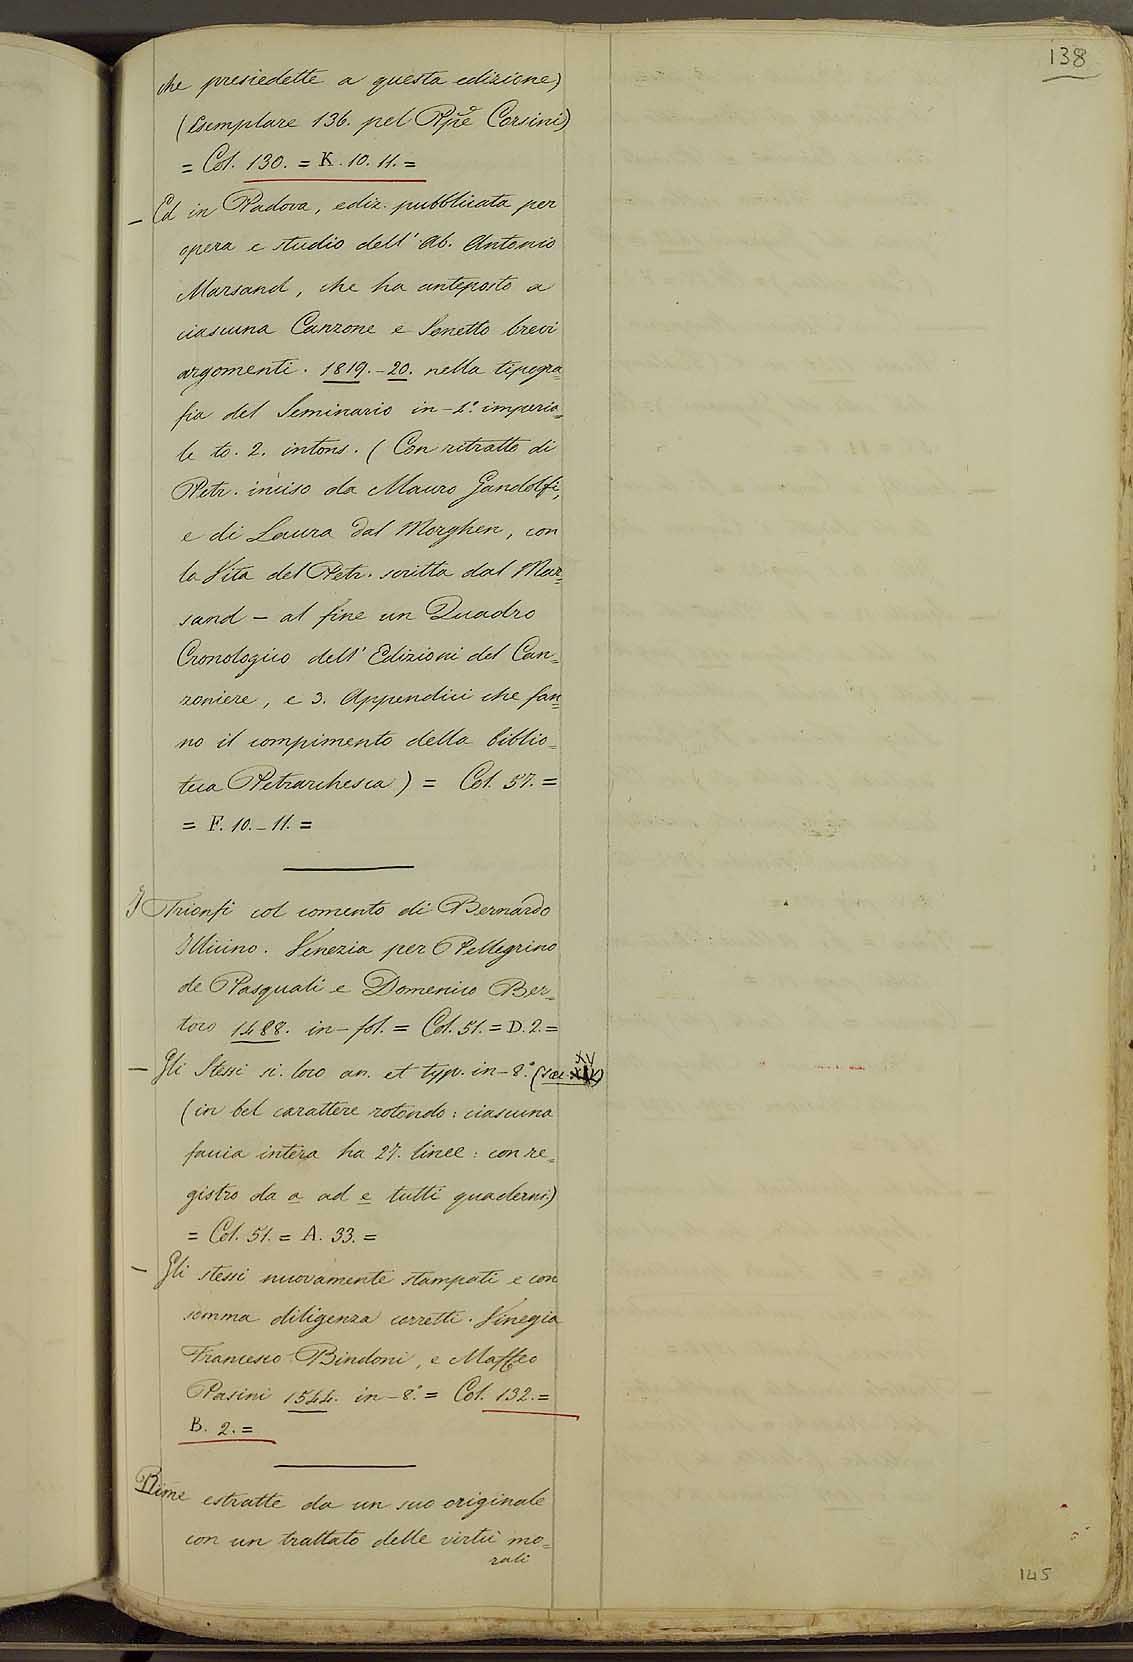 138
che presiedette a questa edizione)
(Esemplare 136. pel Corsini)
= Col. 130. = K. 10. 11. =
— Ed in Padova, ediz. pubblicata per
opera e studio dell' Ab. Antonio
Marsand, che ha anteposto a
ciascuna Canzone e Sonetto brevi
argomenti. 1819.-20. nella tipogra=
fia del Seminario in-4.° imperia=
le to. 2. intons. (Con ritratto di
Petr. inciso da Mauro Gandolfi,
e di Laura dal Morghen, con
la Vita del Petr. scritta dal Mar=
sand — al fine un Quadro
Cronologico dell' Edizioni del Can=
zoniere, e 3. Appendici che fan=
no il compimento della biblio=
teca Petrarchesca) = Col. 57. =
= F. 10.-11. =
I Trionfi col comento di Bernardo
Illicino. Venezia per Pellegrino
de Pasquali e Domenico Ber=
toco 1488. in-fol. = Col. 51. = D. 2. =
— Gli Stessi si. loco an. et typ. in-8.° (sæc. XV)
(in bel carattere rotondo: ciascuna
faccia intera ha 27. linee: con re=
gistro da a ad e tutti quaderni)
= Col. 51. = A. 33. =
— Gli stessi nuovamente stampati e con
somma diligenza corretti. Vinegia
Francesco Bindoni, e Maffeo
Pasini 1544. in-8.° = Col. 132. =
B. 2. =
Rime estratte da un suo originale
con un trattato delle virtù mo=
rali
145